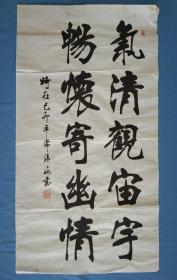 氣清觀宙宇
暢懷寄幽情
時在己卯年